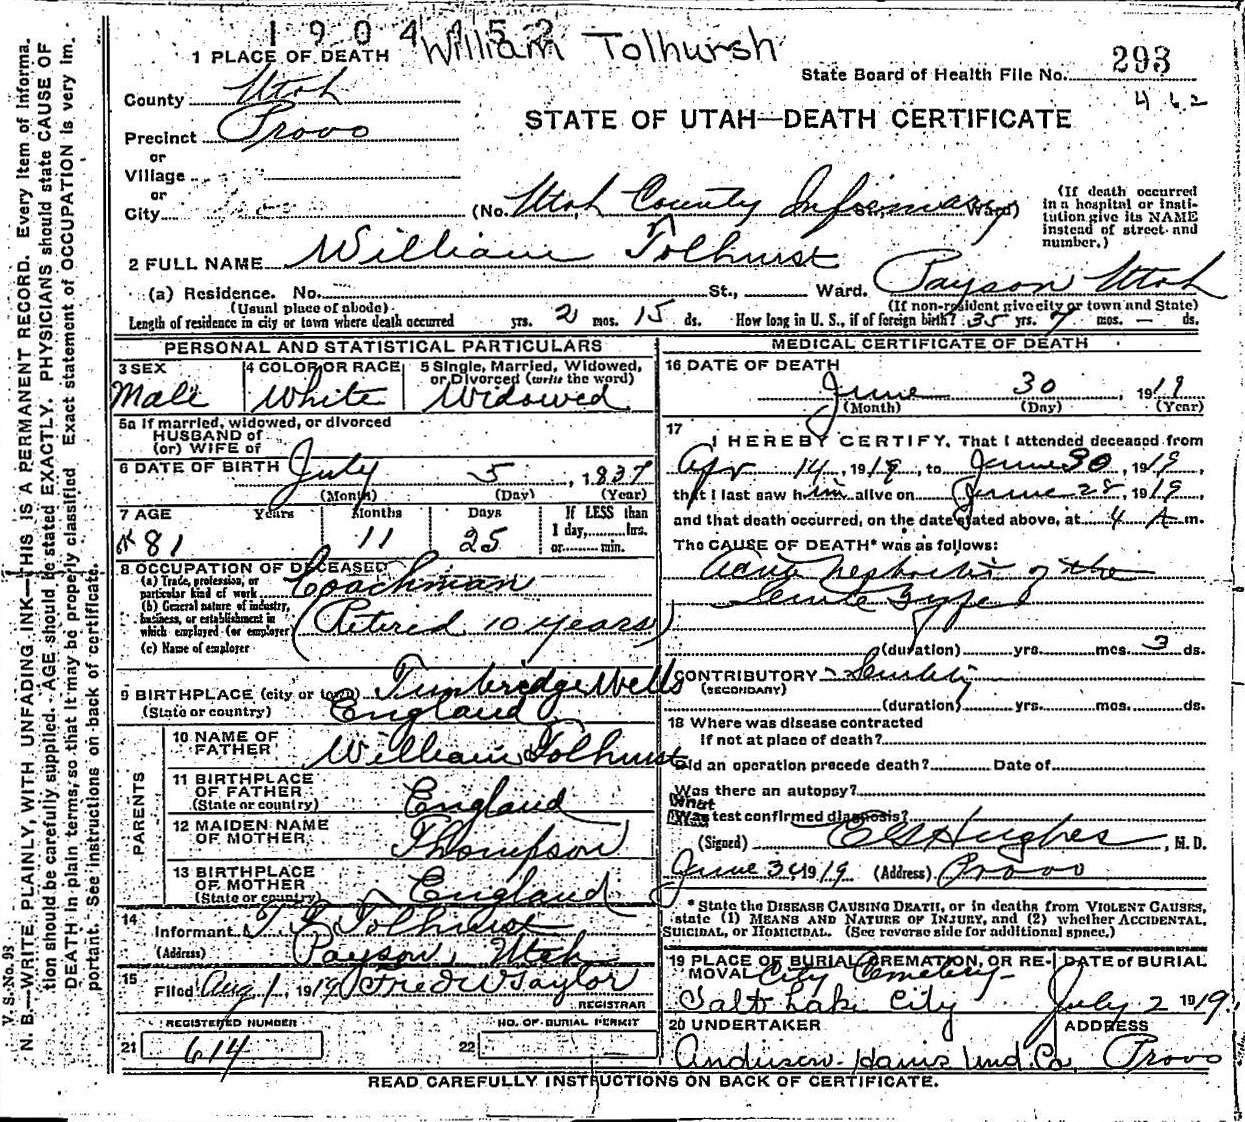 1904152
William Tolhursh
1 PLACE OF DEATH
State Board of Health File No. 293
462
County Utah
STATE OF UTAH—DEATH CERTIFICATE
Precinct Provo
or
Village
or
City (No. Utah County Infirmary St., Ward)
(If death occurred in a hospital or insti-
tution give its NAME instead of street and number.)
2 FULL NAME William Tolhurst
(a) Residence. No. St., Ward. Payson Utah
(Usual place of abode). (If non-resident give city or town and State)
Length of residence in city or town where death occurred yrs. 2 mos. 15 ds. How long in U. S., if of foreign birth? 35 yrs. 7 mos. — ds.
PERSONAL AND STATISTICAL PARTICULARS
3 SEX
Male
4 COLOR OR RACE
White
5 Single, Married, Widowed,
or Divorced (write the word)
Widowed
5a If married, widowed, or divorced
HUSBAND of
(or) WIFE of
6 DATE OF BIRTH July 5, 1837
(Month) (Day) (Year)
7 AGE Years Months Days If LESS than
1 day, hrs.
81 11 25 or min.
8 OCCUPATION OF DECEASED
(a) Trade, profession, or
particular kind of work Coachman
(b) General nature of industry,
business, or establishment in
which employed (or employer) (Retired 10 years)
(c) Name of employer
9 BIRTHPLACE (city or town) Tunbridge Wells
(State or country) England
PARENTS
10 NAME OF
FATHER William Tolhurst
11 BIRTHPLACE
OF FATHER
(State or country) England
12 MAIDEN NAME
OF MOTHER Thompson
13 BIRTHPLACE
OF MOTHER
(State or country) England
14
Informant T. E. Tolhurst
(Address) Payson, Utah
15
Filed Aug 1, 1919 Fred W Taylor
REGISTRAR
REGISTERED NUMBER NO. OF BURIAL PERMIT
21 614 22
MEDICAL CERTIFICATE OF DEATH
16 DATE OF DEATH
June 30, 1919
(Month) (Day) (Year)
17
I HEREBY CERTIFY, That I attended deceased from
Apr 14, 1919, to June 30, 1919,
that I last saw him alive on June 28, 1919,
and that death occurred, on the date stated above, at 4 A m.
The CAUSE OF DEATH* was as follows:
Acute Nephritis of the
Senile Type
(duration) yrs. mos. 3 ds.
CONTRIBUTORY Senility
(SECONDARY)
(duration) yrs. mos. ds.
18 Where was disease contracted
If not at place of death?
Did an operation precede death? Date of
Was there an autopsy?
What test confirmed diagnosis?
(Signed) Hughes, M. D.
June 30 1919 (Address) Provo
* State the DISEASE CAUSING DEATH, or in deaths from VIOLENT CAUSES,
state (1) MEANS AND NATURE OF INJURY, and (2) whether ACCIDENTAL,
SUICIDAL, or HOMICIDAL. (See reverse side for additional space.)
19 PLACE OF BURIAL, CREMATION, OR RE-
MOVAL City Cemetery
Salt Lake City
DATE of BURIAL
July 2 1919.
20 UNDERTAKER
ADDRESS
Und. Co. Provo
READ CAREFULLY INSTRUCTIONS ON BACK OF CERTIFICATE.
V. S. No. 93
N. B.—WRITE PLAINLY, WITH UNFADING INK—THIS IS A PERMANENT RECORD. Every item of informa-
tion should be carefully supplied. AGE should be stated EXACTLY. PHYSICIANS should state CAUSE OF
DEATH in plain terms, so that it may be properly classified. Exact statement of OCCUPATION is very im-
portant. See instructions on back of certificate.